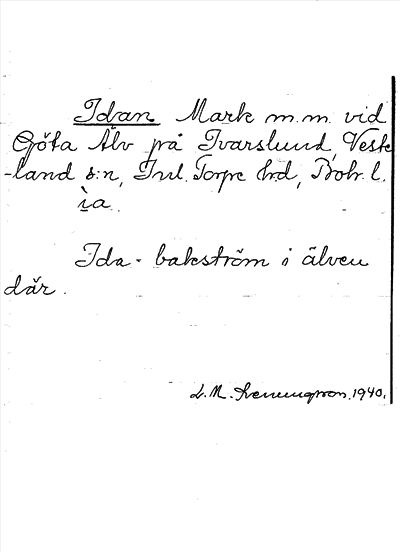 Idan Mark m.m. vid
Göta Älv på Ivarslund, Väst-
-land s:n, Inl. Torpe hrd, Boh. l.
ìa.
Ida - bakström i älven
där.
L. M. Svenungsson. 1940.